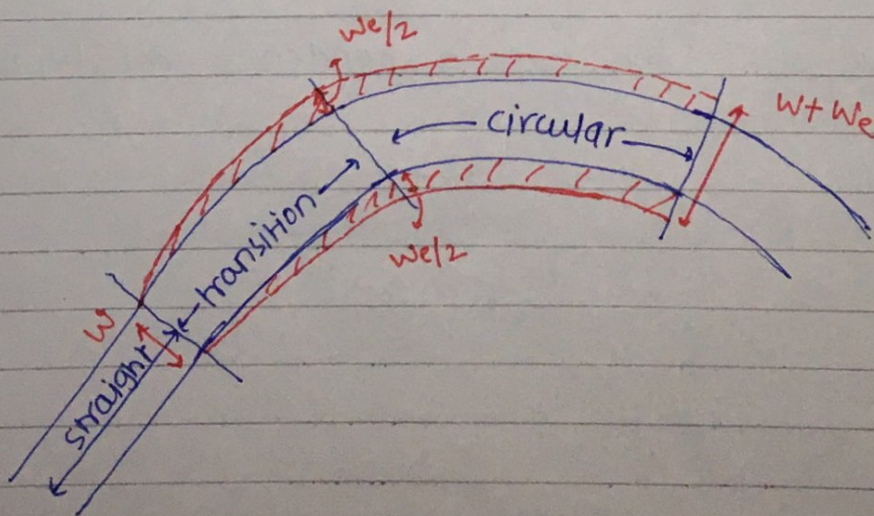 We/2
W+We
circular
transition
We/2
W
straight